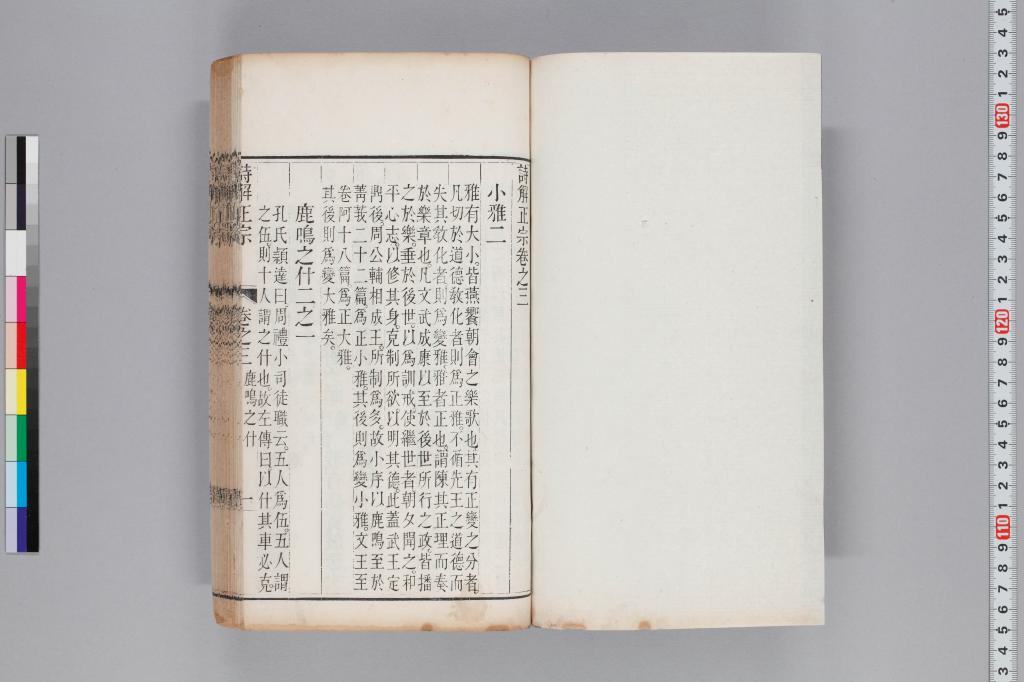 詩解正宗卷之三
小雅二
雅有大小皆燕饗朝會之樂歌也其有正變之分者
凡切於道德敎化者則爲正雅不脩先王之道德而
失其敎化者則爲變雅雅者正也謂陳其正理而奏
於樂章也凡文武成康以至於後世所行之政皆播
之於樂垂於後世以爲訓戒使繼世者朝夕聞之和
平心志以修其身克制所欲以明其德此蓋武王定
鼎後周公輔相成王所制爲多故小序以鹿鳴至於
菁莪二十二篇爲正小雅其後則爲變小雅文王至
卷阿十八篇爲正大雅
其後則爲變大雅矣
鹿鳴之什二之一
孔氏穎達曰周禮小司徒職云五人爲伍五人謂
之伍則十人謂之什也故左傳曰以什其車必克
詩解正宗
卷之三
鹿鳴之什
一